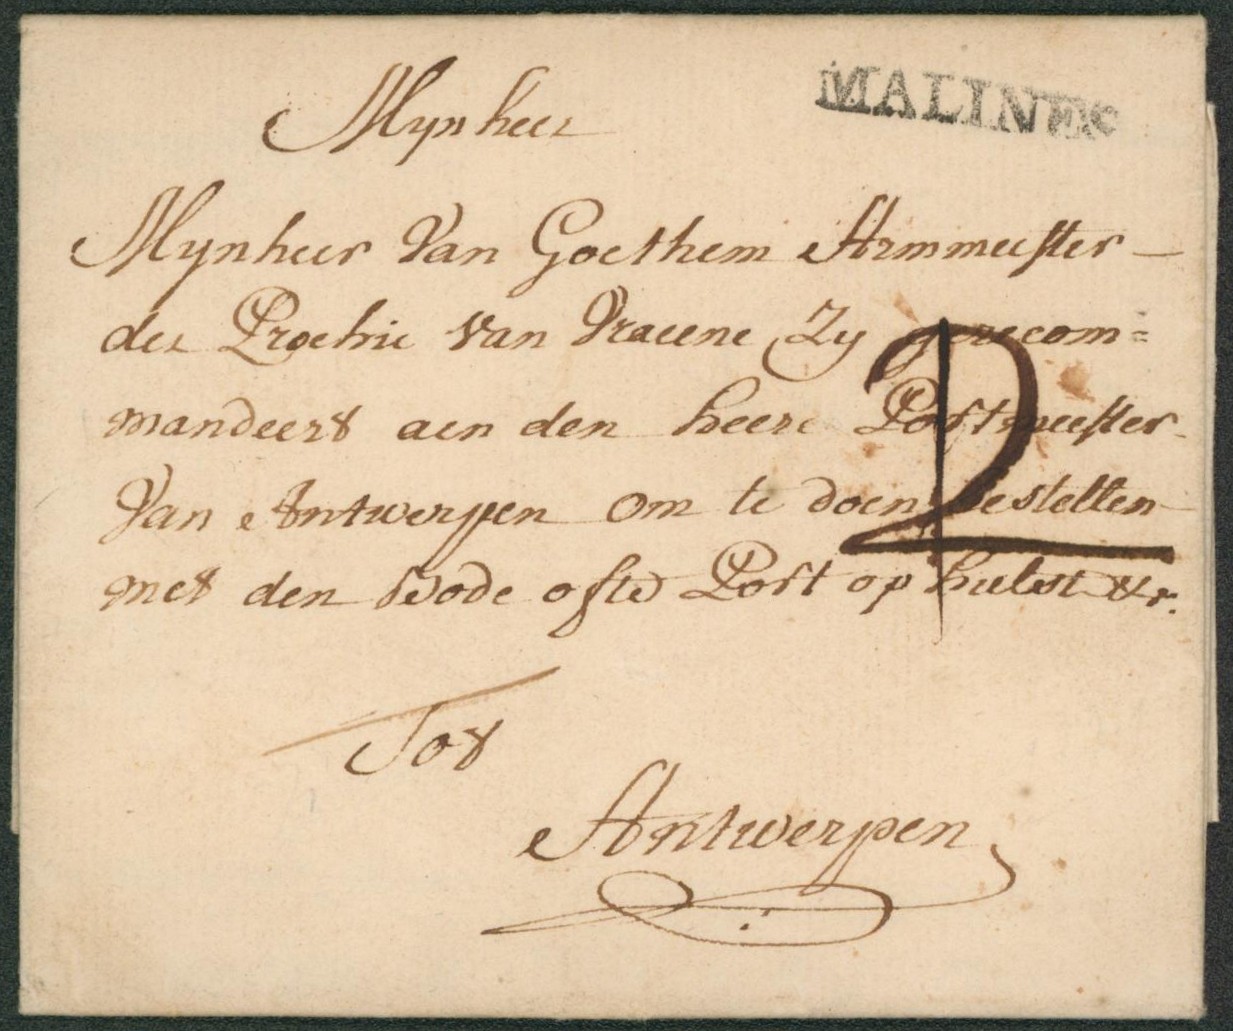 MALINES
Mynheer
Mynheer Van Goethem Armmeester
der Prochie van Vracene Zy gerecom=
mandeert aen den heere Postmeester
Van Antwerpen om te doen bestellen
met den Bode ofte Post op hulst &r.
2
Tot
Antwerpen